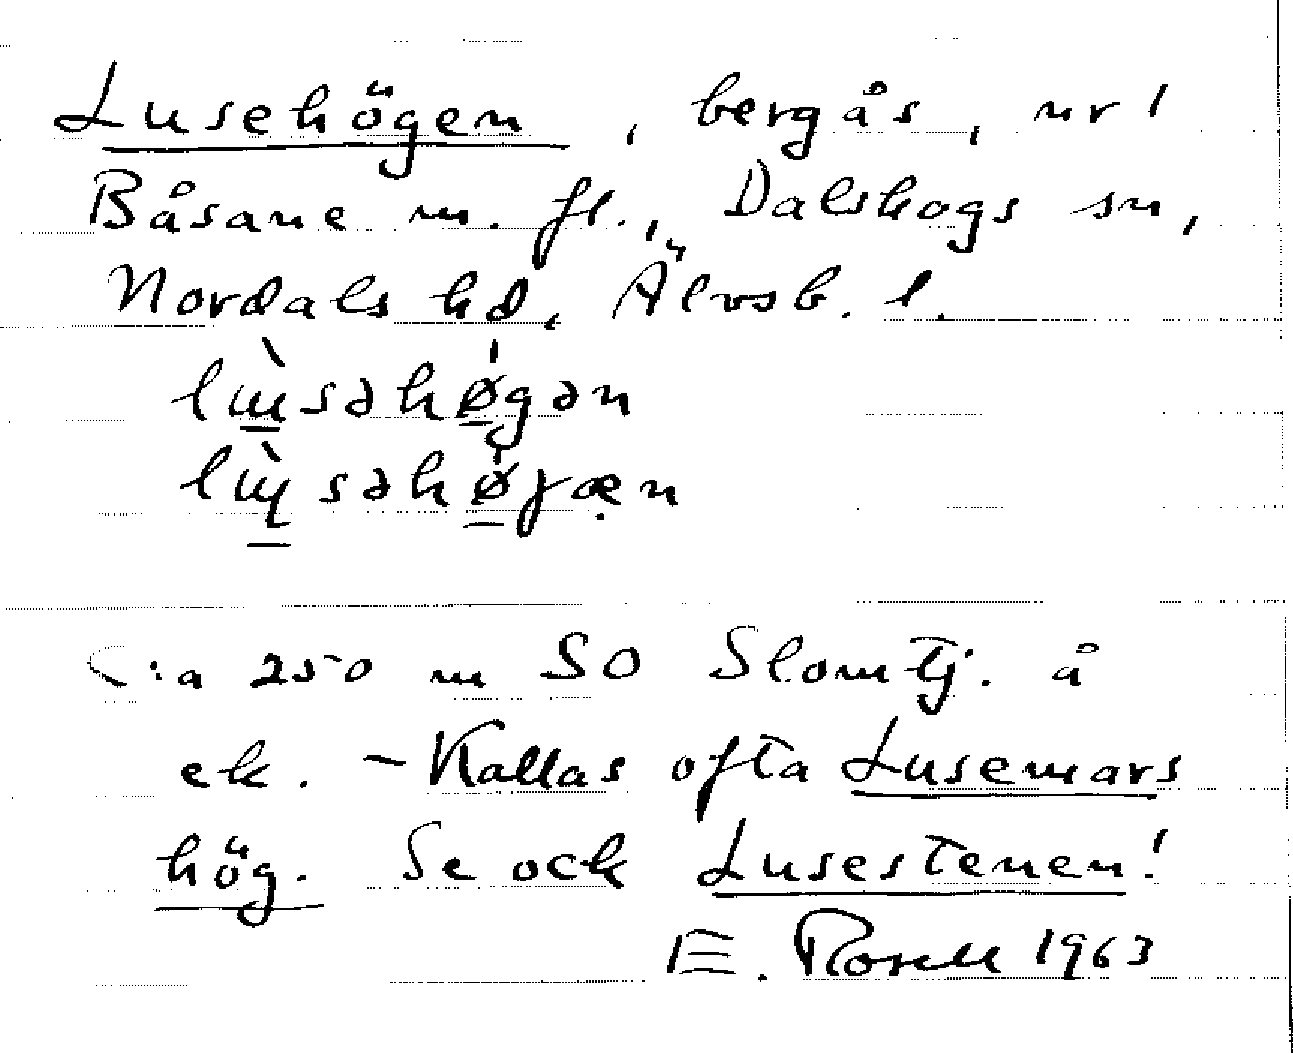 Lusehögen, bergås, nr 1
Båsane m. fl., Dalskogs sn,
Nordals hd, Älvsb. l.
lɯ̀səhǿgən
lɯ̀səhǿjæn
C:a 250 m SO Slomtj. å
ek. - Kallas ofta Lusemars
hög. Se och Lusestenen!
E. Rosell 1963